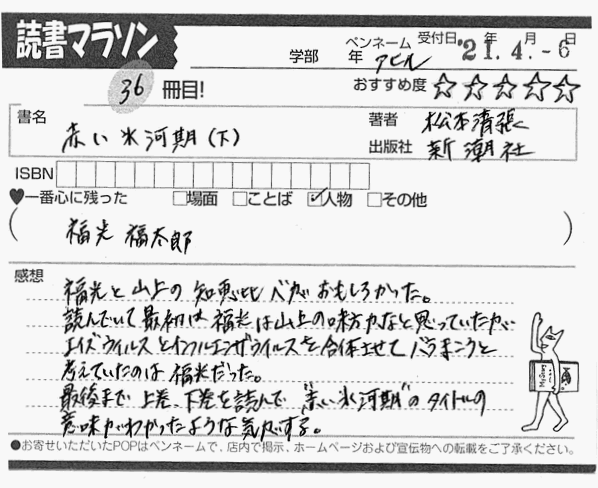 読書マラソン
学部 年 ペンネーム アビル 受付日 '21年 4.月 -6日
36 冊目!
おすすめ度 ☆☆☆☆☆
書名 赤い氷河期(下)
著者 松本清張
出版社 新潮社
ISBN
♥一番心に残った □場面 □ことば ☑人物 □その他
( 福光 福太郎 )
感想
福光と山上の知恵比べがおもしろかった。
読んでいて最初は福光は山上の味方かなと思っていたが
エイズウイルスとインフルエンザウイルスを合体させてバラまこうと
考えていたのは福光だった。
最後まで上巻、下巻を読んで"赤い氷河期"のタイトルの
意味がわかったような気がする。
●お寄せいただいたPOPはペンネームで、店内で掲示、ホームページおよび宣伝物への転載をご了承ください。